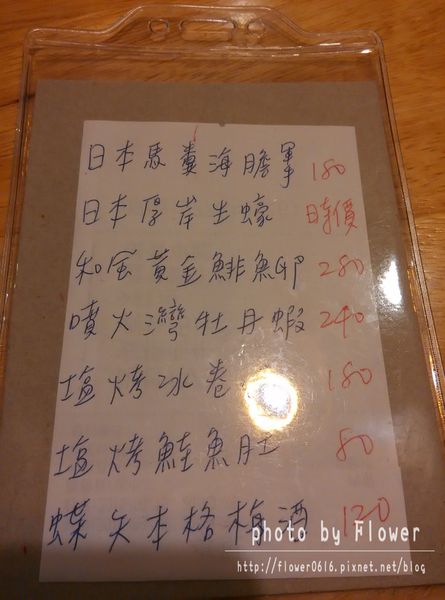 日本馬糞海膽軍 180
日本厚岸生蠔 時價
和金黃金鯡魚卵 280
噴火灣牡丹蝦 240
塩烤冰卷 180
塩烤鮭魚肚 80
蝶矢本格梅酒 120
photo by Flower
http://flower0616.pixnet.net/blog